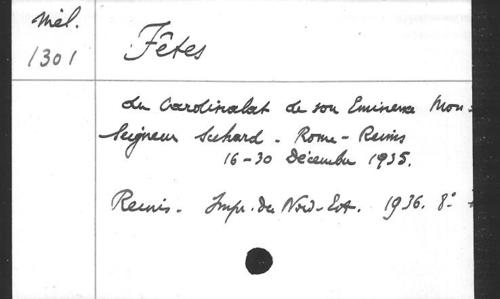 Mél.
1301
Fêtes
du Cardinalat de son Eminence Mon-
seigneur Suhard - Rome - Reims
16-30 Décembre 1935.
Reims. Impr. du Nord-Est. 1936. 8°